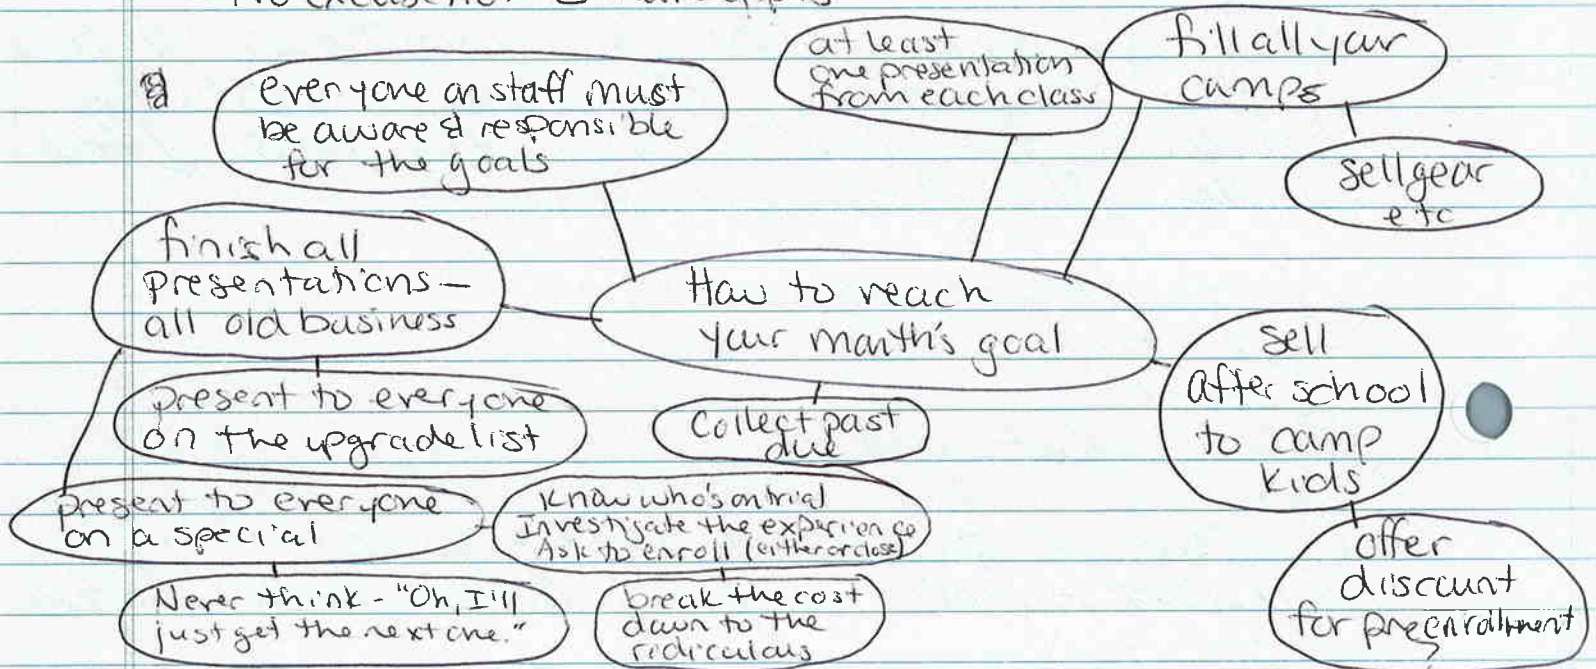 at least
one presentation
from each class
fill all your
camps
everyone on staff must
be aware & responsible
for the goals
sell gear
etc
finish all
presentations —
all old business
How to reach
your month's goal
sell
after school
to camp
kids
present to everyone
on the upgrade list
Collect past
due
present to everyone
on a special
Know who's on trial
Investigate the experience
Ask to enroll (either or close)
offer
discount
for preenrollment
?
Never think - "Oh, I'll
just get the next one."
break the cost
down to the
ridiculous